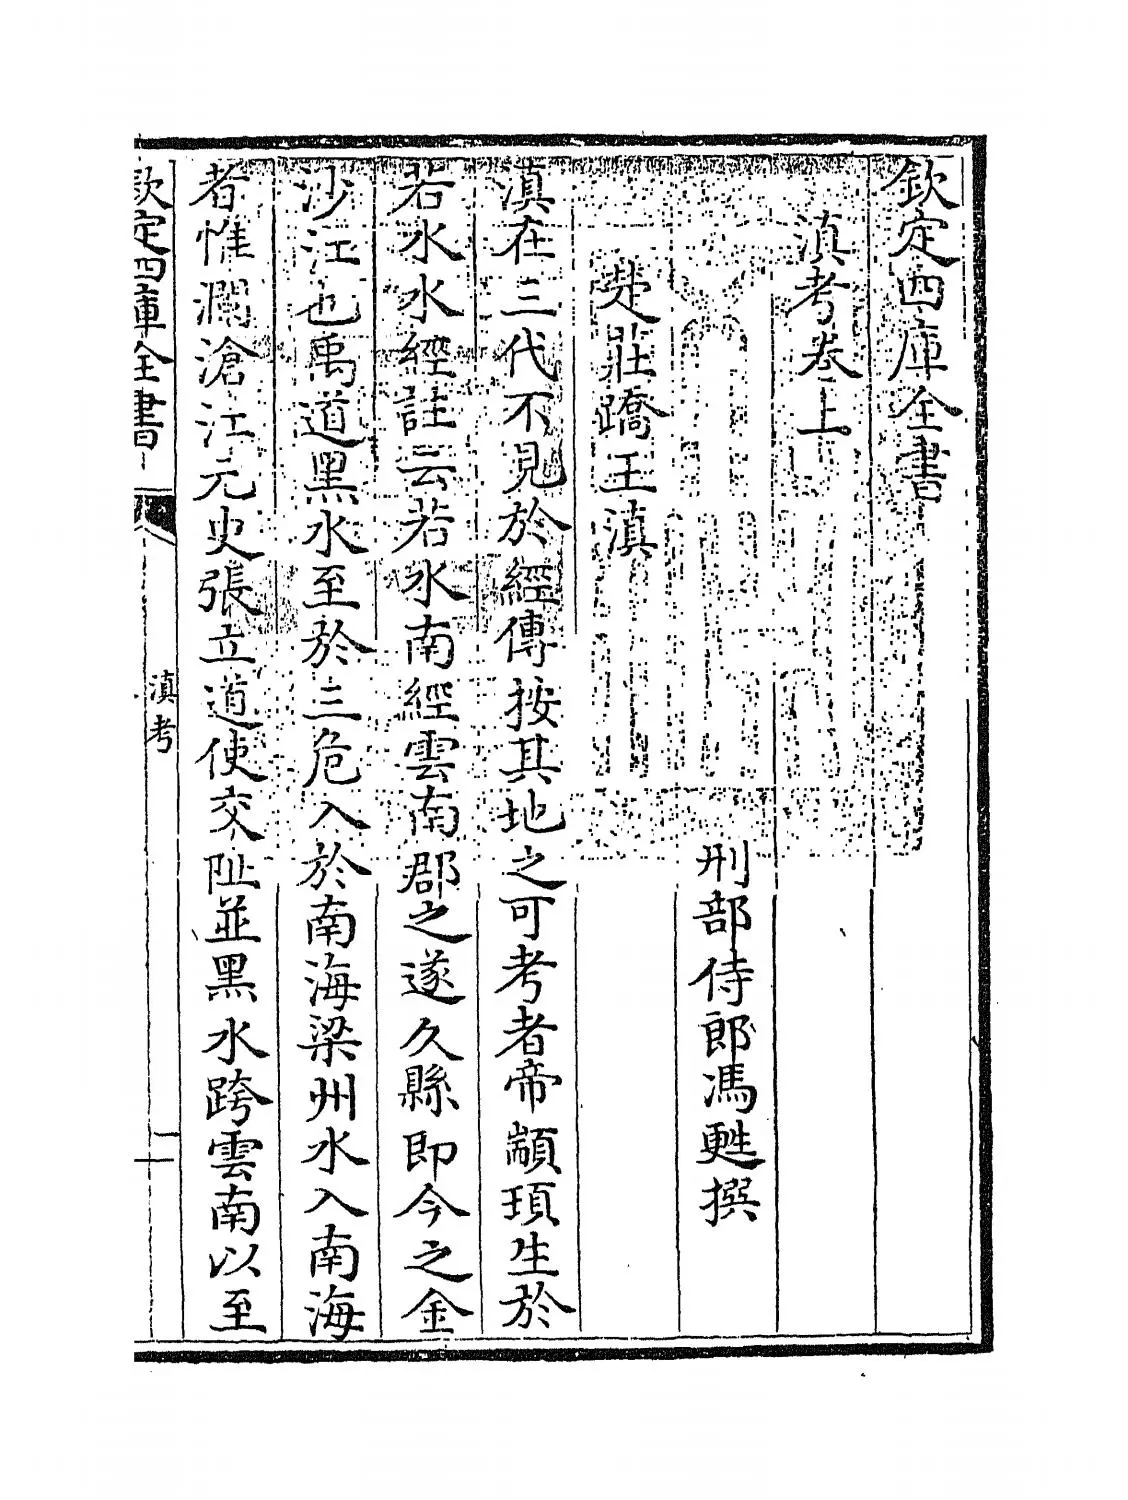 欽定四庫全書
滇考卷上
刑部侍郎馮甦撰
楚莊蹻王滇
滇在三代不見於經傳按其地之可考者帝顓頊生於
若水水經註云若水南經雲南郡之遂久縣即今之金
沙江也禹道黑水至於三危入於南海梁州水入南海
者惟瀾滄江元史張立道使交阯並黑水跨雲南以至
欽定四庫全書
滇考
一